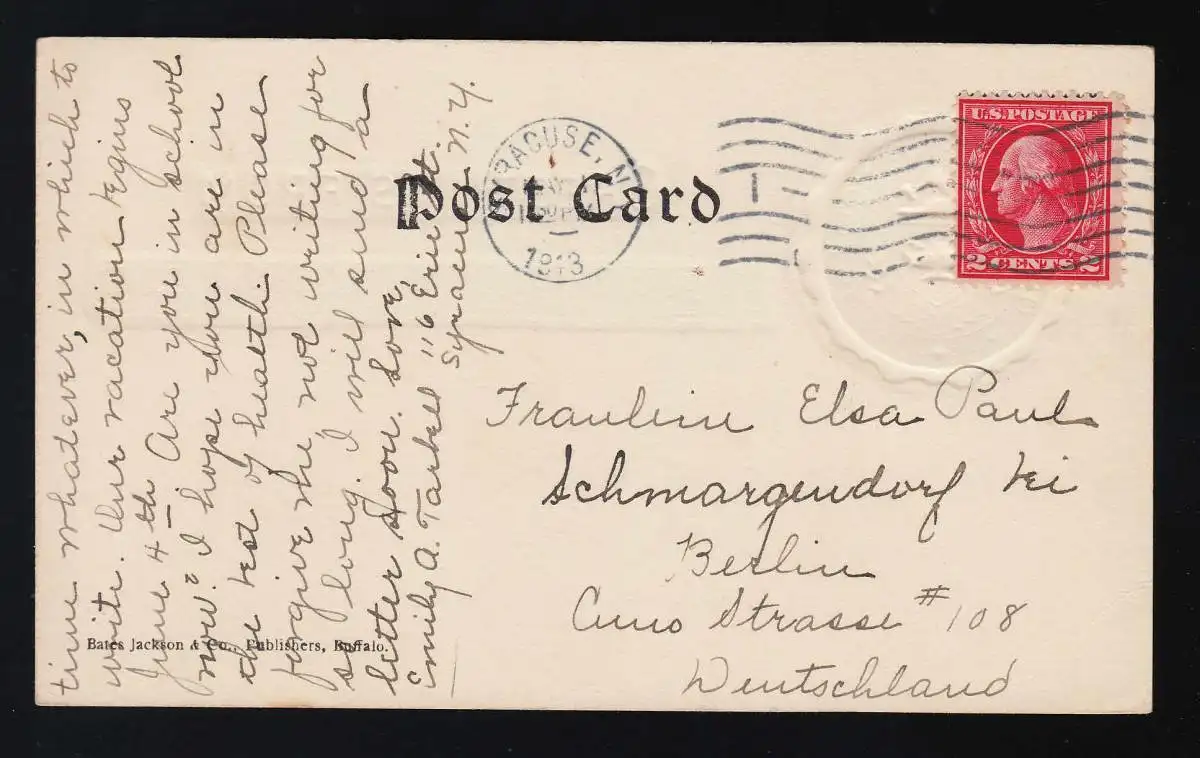 time whatever, in which to
write. Our vacation begins
June 4th Are you in school
now? I hope you are in
the best of health. Please
forgive me not writing for
so long. I will send
letter soon. Love,
Emily A. Tarbell 116 Erie st.
Syracuse N.Y.
Post Card
SYRACUSE, N
1913
U.S. POSTAGE
2 CENTS 2
Fraulein Elsa Paul
Schmargendorf bei
Berlin
Cuno Strasse #108
Deutschland
Bates Jackson & Co., Publishers, Buffalo.